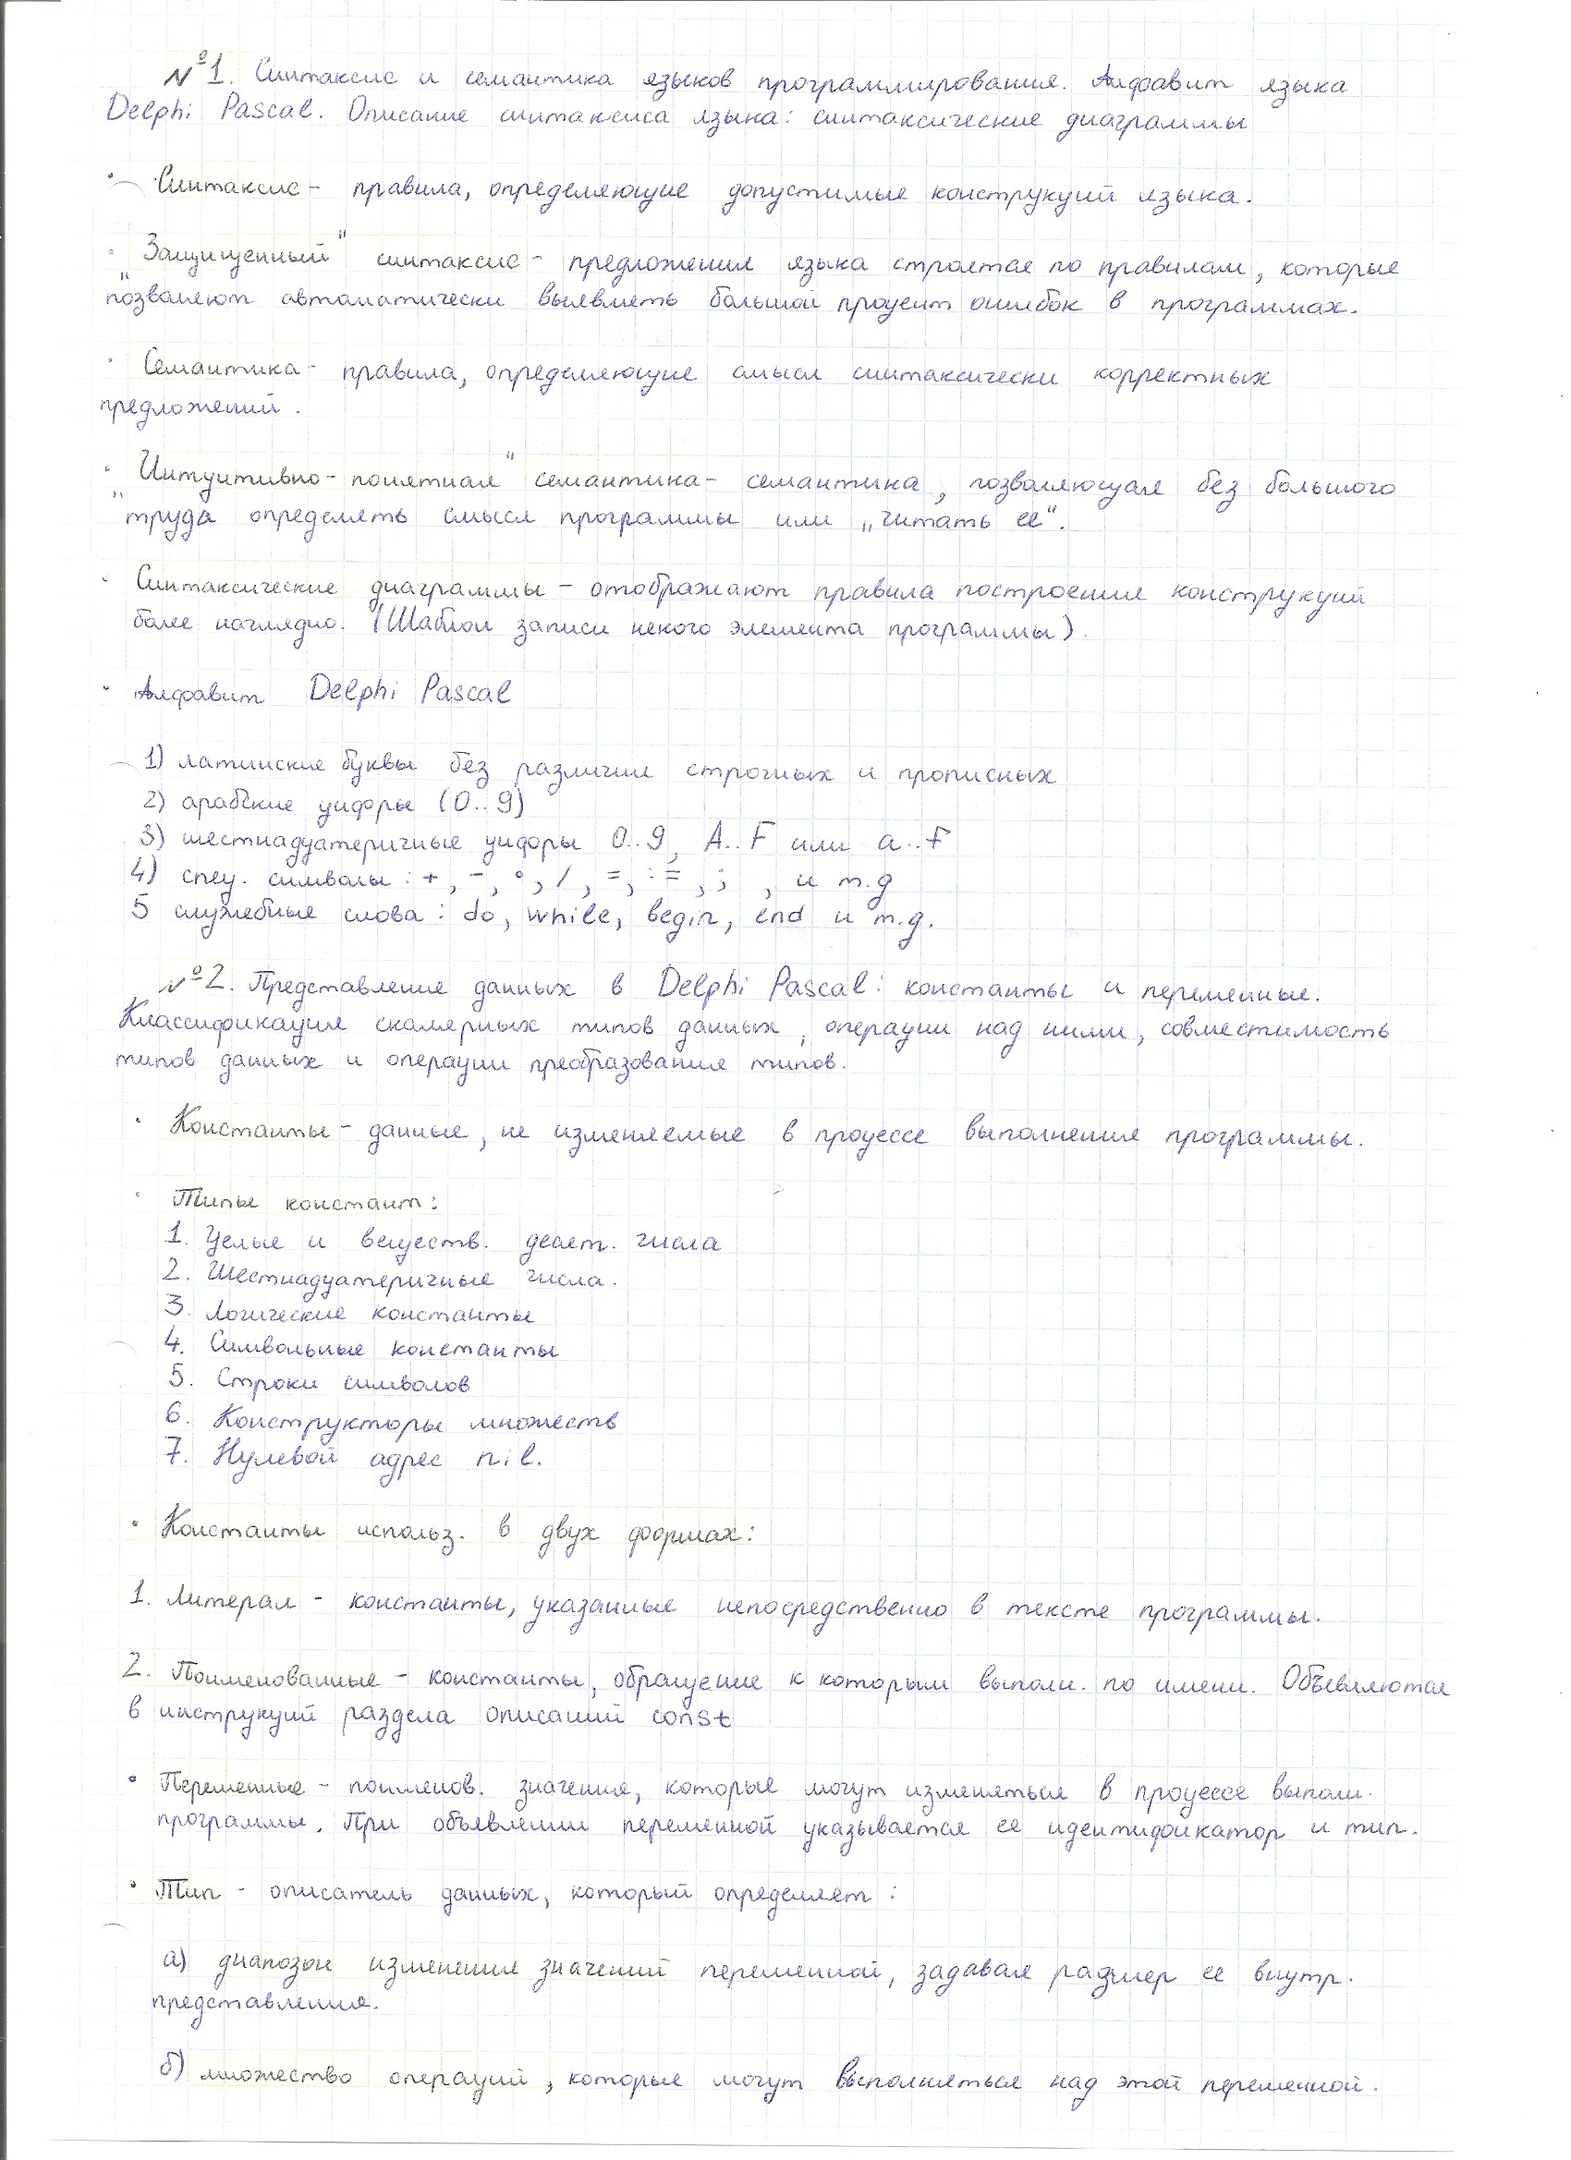 №1. Синтаксис и семантика языков программирования. Алфавит языка
Delphi Pascal. Описание синтаксиса языка: синтаксические диаграммы
· Синтаксис - правила, определяющие допустимые конструкций языка.
· "Защищенный" синтаксис - предложения языка строятся по правилам, которые
позволяют автоматически выявлять большой процент ошибок в программах.
· Семантика - правила, определяющие смысл синтаксически корректных
предложений.
· "Интуитивно-понятная" семантика - семантика, позволяющая без большого
труда определять смысл программы или „читать ее“.
· Синтаксические диаграммы - отображают правила построения конструкций
более наглядно. (Шаблон записи некого элемента программы).
· Алфавит Delphi Pascal
1) латинские буквы без различия строчных и прописных
2) арабские цифры (0..9)
3) шестнадцатеричные цифры 0..9, A..F или a..f
4) спец. символы: +, -, *, /, =, :=, ; , и т.д
5 служебные слова: do, while, begin, end и т.д.
№2. Представление данных в Delphi Pascal: константы и переменные.
Классификация скалярных типов данных, операции над ними, совместимость
типов данных и операции преобразования типов.
· Константы - данные, не изменяемые в процессе выполнения программы.
· Типы констант:
1. Целые и веществ. десят. числа
2. Шестнадцатеричные числа.
3. Логические константы
4. Символьные константы
5. Строки символов
6. Конструкторы множеств
7. Нулевой адрес nil.
· Константы использ. в двух формах:
1. Литерал - константы, указанные непосредственно в тексте программы.
2. Поименованные - константы, обращение к которым выполн. по имени. Объявляются
в инструкций раздела описаний const
· Переменные - поименов. значения, которые могут изменяться в процессе выполн.
программы. При объявлении переменной указывается ее идентификатор и тип.
· Тип - описатель данных, который определяет:
а) диапозон изменения значений переменной, задавая размер ее внутр.
представления.
б) множество операций, которые могут выполняться над этой переменной.